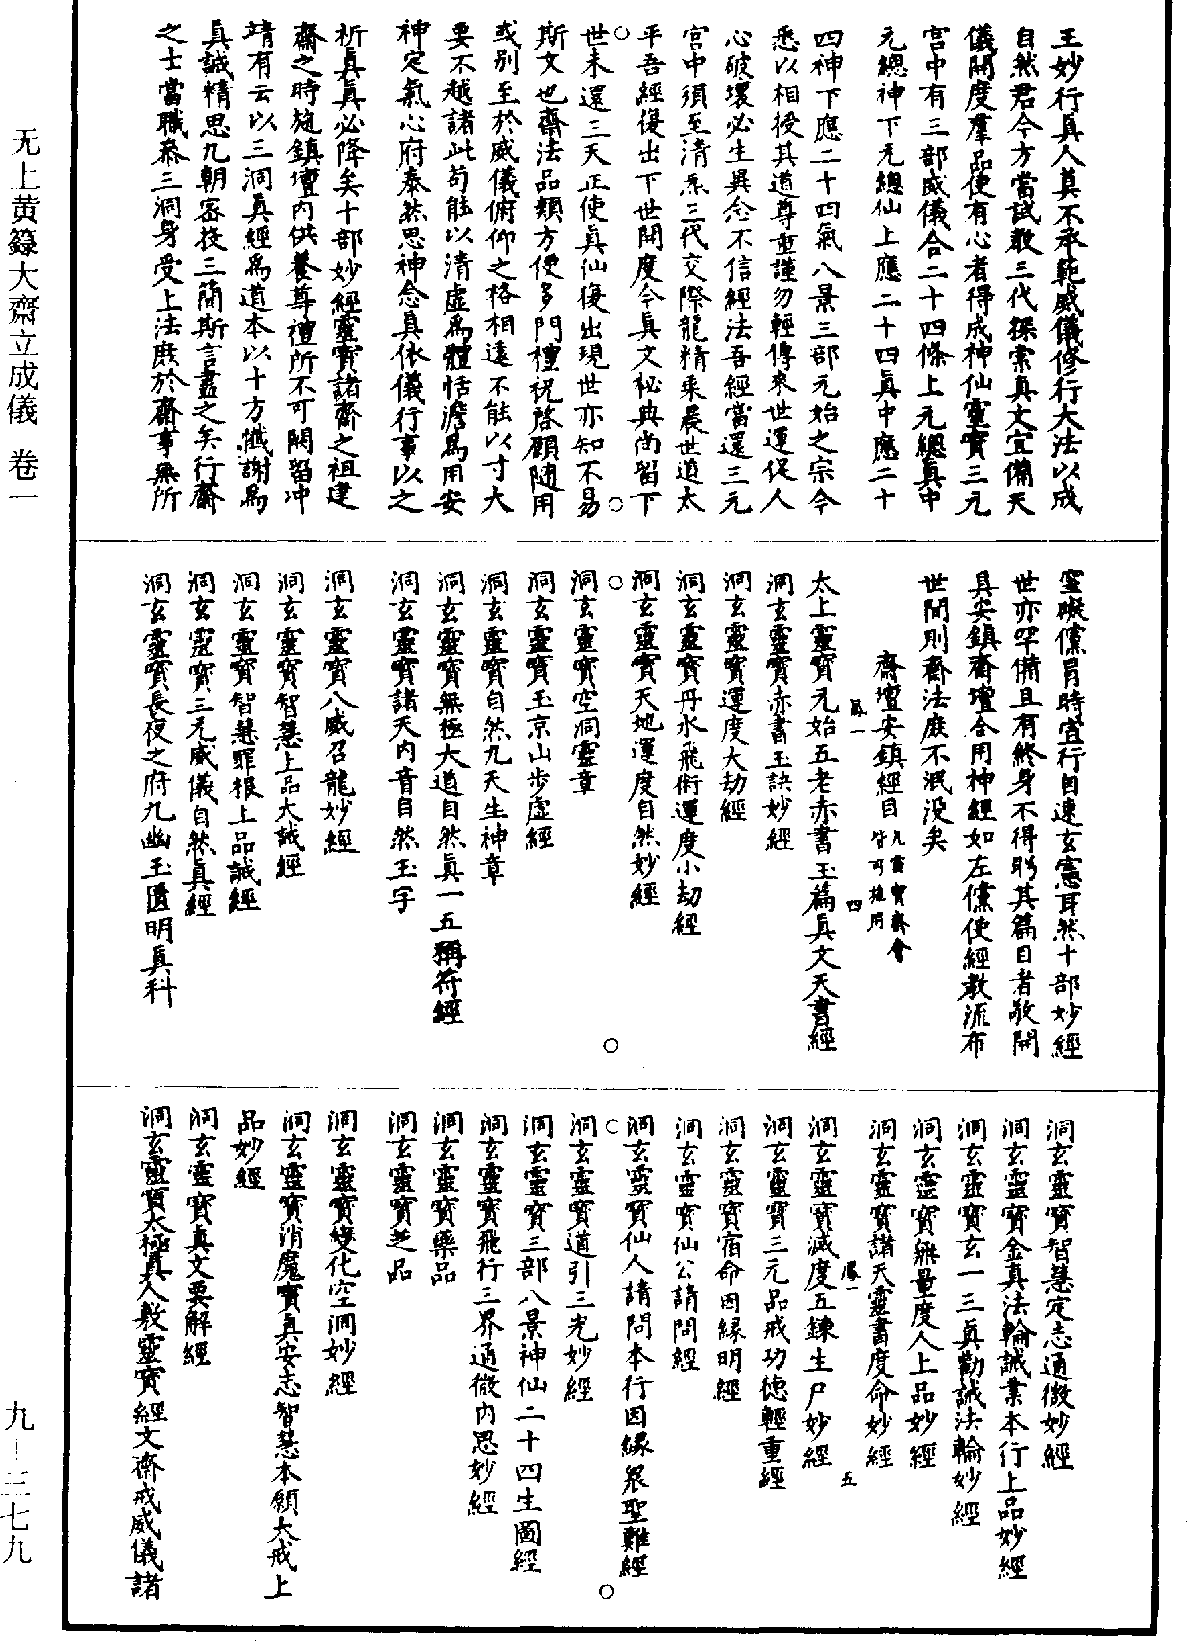 王妙行真人莫不承範威儀修行大法以成
自然君今方當試教三代探索真文宜備天
儀開度羣品使有心者得成神仙靈寶三元
宮中有三部威儀合二十四條上元總真中
元總神下元總仙上應二十四真中應二十
四神下應二十四氣八景三部元始之宗今
悉以相授其道尊重謹勿輕傳來世運促人
心破壞必生異念不信經法吾經當還三元
宮中須至清炁三代交際龍精乘晨世道太
平吾經復出下世開度今真文秘典尚留下
世未還三天正使真仙復出現世亦知不易
斯文也齋法品類方便多門禮祝啓願隨用
或別至於威儀俯仰之格相遠不能以寸大
要不越諸此苟能以清虛為體恬澹為用安
神定氣心府泰然思神念真依儀行事以之
祈真真必降矣十部妙經靈寶諸齋之祖建
齋之時旋鎮壇內供養尊禮所不可闕留冲
靖有云以三洞真經為道本以十方懺謝為
真誠精思九朝密投三簡斯言盡之矣行齋
之士當職參三洞身受上法庶於齋事無所
窒礙儻冒時宜行自速玄憲耳然十部妙經
世亦罕備且有終身不得聆其篇目者敬開
具安鎮齋壇合用神經如左儻使經教流布
世間則齋法庶不泯没矣
齋壇安鎮經目凡靈寶齋會皆可施用
太上靈寶元始五老赤書玉篇真文天書經
洞玄靈寶赤書玉訣妙經
洞玄靈寶運度大劫經
洞玄靈寶丹水飛術運度小劫經
洞玄靈寶天地運度自然妙經
洞玄靈寶空洞靈章
洞玄靈寶玉京山步虛經
洞玄靈寶自然九天生神章
洞玄靈寶無極大道自然真一五稱符經
洞玄靈寶諸天內音自然玉字
洞玄靈寶八威召龍妙經
洞玄靈寶智慧上品大誡經
洞玄靈寶智慧罪根上品誡經
洞玄靈寶三元威儀自然真經
洞玄靈寶長夜之府九幽玉匱明真科
洞玄靈寶智慧定志通微妙經
洞玄靈寶金真法輪誡業本行上品妙經
洞玄靈寶玄一三真勸誡法輪妙經
洞玄靈寶無量度人上品妙經
洞玄靈寶諸天靈書度命妙經
洞玄靈寶滅度五鍊生尸妙經
洞玄靈寶三元品戒功德輕重經
洞玄靈寶宿命因緣明經
洞玄靈寶仙公請問經
洞玄靈寶仙人請問本行因緣眾聖難經
洞玄靈寶道引三光妙經
洞玄靈寶三部八景神仙二十四生圖經
洞玄靈寶飛行三界通微內思妙經
洞玄靈寶藥品
洞玄靈寶芝品
洞玄靈寶變化空洞妙經
洞玄靈寶消魔寶真安志智慧本願大戒上
品妙經
洞玄靈寶真文要解經
洞玄靈寶太極真人敷靈寶經文齋戒威儀諸
无上黄籙大齋立成儀 卷一
九—三七九